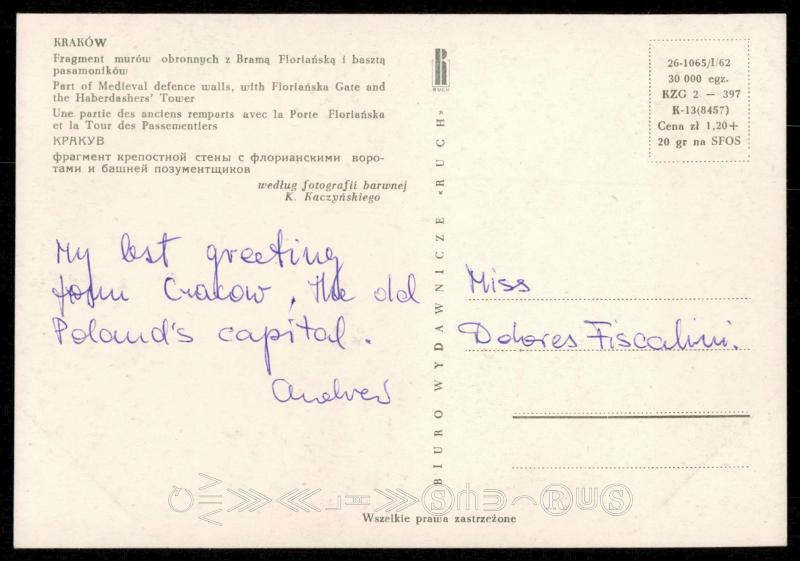 KRAKÓW
Fragment murów obronnych z Bramą Floriańską i basztą
pasamoników
Part of Medieval defence walls, with Floriańska Gate and
the Haberdashers' Tower
Une partie des anciens remparts avec la Porte Floriańska
et la Tour des Passementiers
КРАКУВ
фрагмент крепостной стены с флорианскими воро-
тами и башней позументщиков
według fotografii barwnej
K. Kaczyńskiego
My best greeting
from Cracow, the old
Poland's capital.
BIURO WYDAWNICZE «RUCH»
RUCH
26-1065/I/62
30 000 egz.
KZG 2 — 397
K-13(8457)
Cena zł 1,20+
20 gr na SFOS
Miss
Dolores Fiscalini.
Wszelkie prawa zastrzeżone